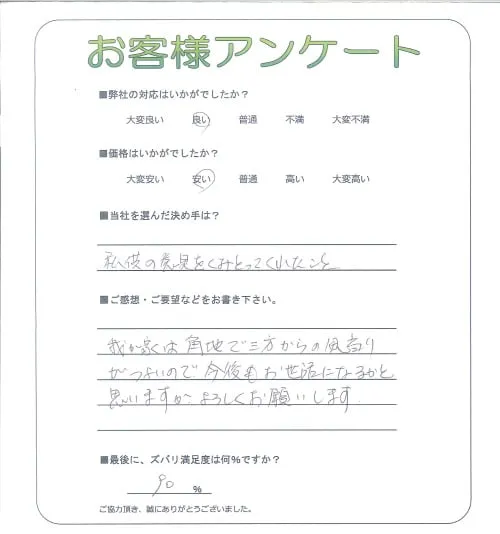 お客様アンケート
■弊社の対応はいかがでしたか？
大変良い 良い 普通 不満 大変不満
■価格はいかがでしたか？
大変安い 安い 普通 高い 大変高い
■当社を選んだ決め手は？
私優の意見をくみとってくれたこと
■ご感想・ご要望などをお書き下さい。
我が家は角地で三方からの風当り
がつよいので今後もお世話になるかと
思いますが、よろしくお願いします
■最後に、ズバリ満足度は何%ですか？
90 %
ご協力頂き、誠にありがとうございました。